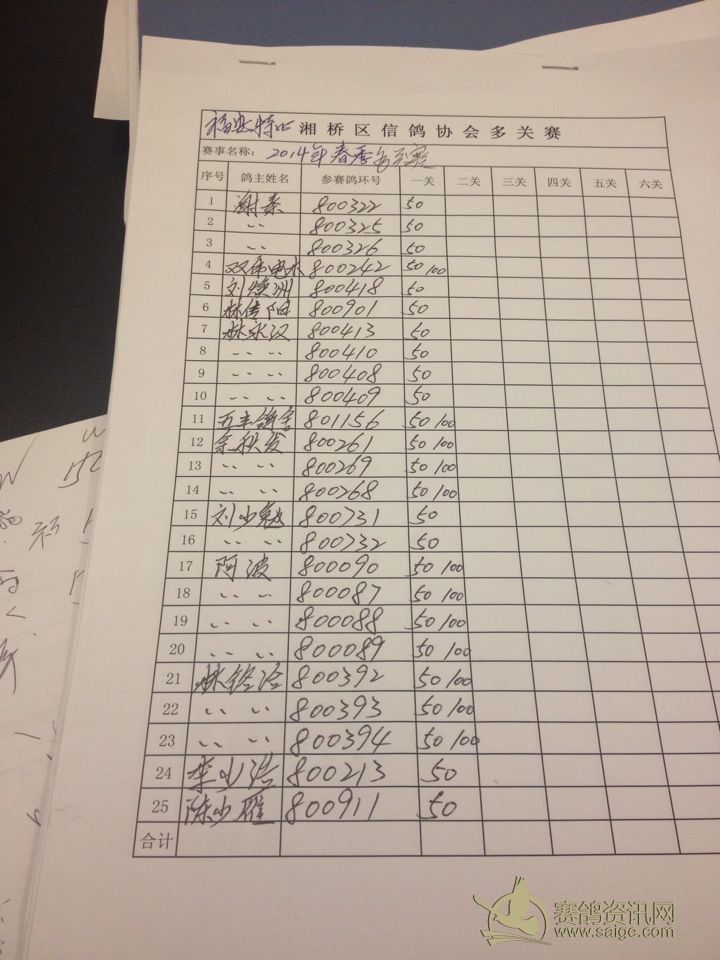 湘桥区信鸽协会多关赛
赛事名称: 2014年春季多关赛
序号 鸽主姓名 参赛鸽环号 一关 二关 三关 四关 五关 六关
1 谢泰 800322 50
2 〃 800325 50
3 〃 800326 50
4 双伟电木 800242 50 100
5 刘焕洲 800418 50
6 林侍阳 800901 50
7 林永汉 800413 50
8 〃 〃 800410 50
9 〃 〃 800408 50
10 〃 〃 800409 50
11 五丰鸽舍 801156 50 100
12 余秋发 800261 50 100
13 〃 〃 800269 50 100
14 〃 〃 800268 50 100
15 刘少勉 800731 50
16 〃 〃 800732 50
17 阿波 800090 50 100
18 〃 〃 800087 50 100
19 〃 〃 800088 50 100
20 〃 〃 800089 50 100
21 林铭泾 800392 50 100
22 〃 〃 800393 50 100
23 〃 〃 800394 50 100
24 李少浩 800213 50
25 陈少雁 800911 50
合计
赛鸽资讯网
www.saige.com